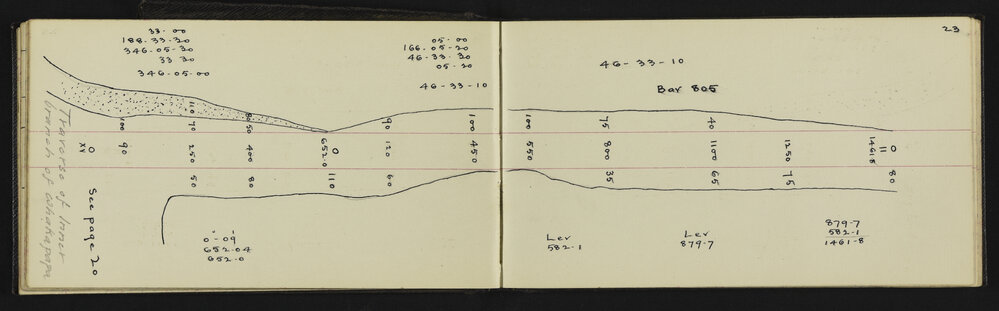 23
33-00
188-33-20
346-05-30
33 30
346-05-00
05-00
166-05-20
46-33-30
05-20
46-33-10
46-33-10
Bar 805
110
80
100
70
50
90
100
100
75
40
0
0
90
250
400
652.0
120
450
550
800
1100
1250
1461.8
50
80
110
60
35
65
75
80
Traverse of Inner
branch of Whakapapa
See page 20
0-09
652.04
652.0
Lev
582.1
Lev
879.7
879.7
582.1
1461.8